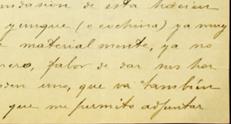 de esta
y yunque (o cochina) ya muy
materialmente, ya no
favor de dar sus
uno, que va también
que me permito adjuntar